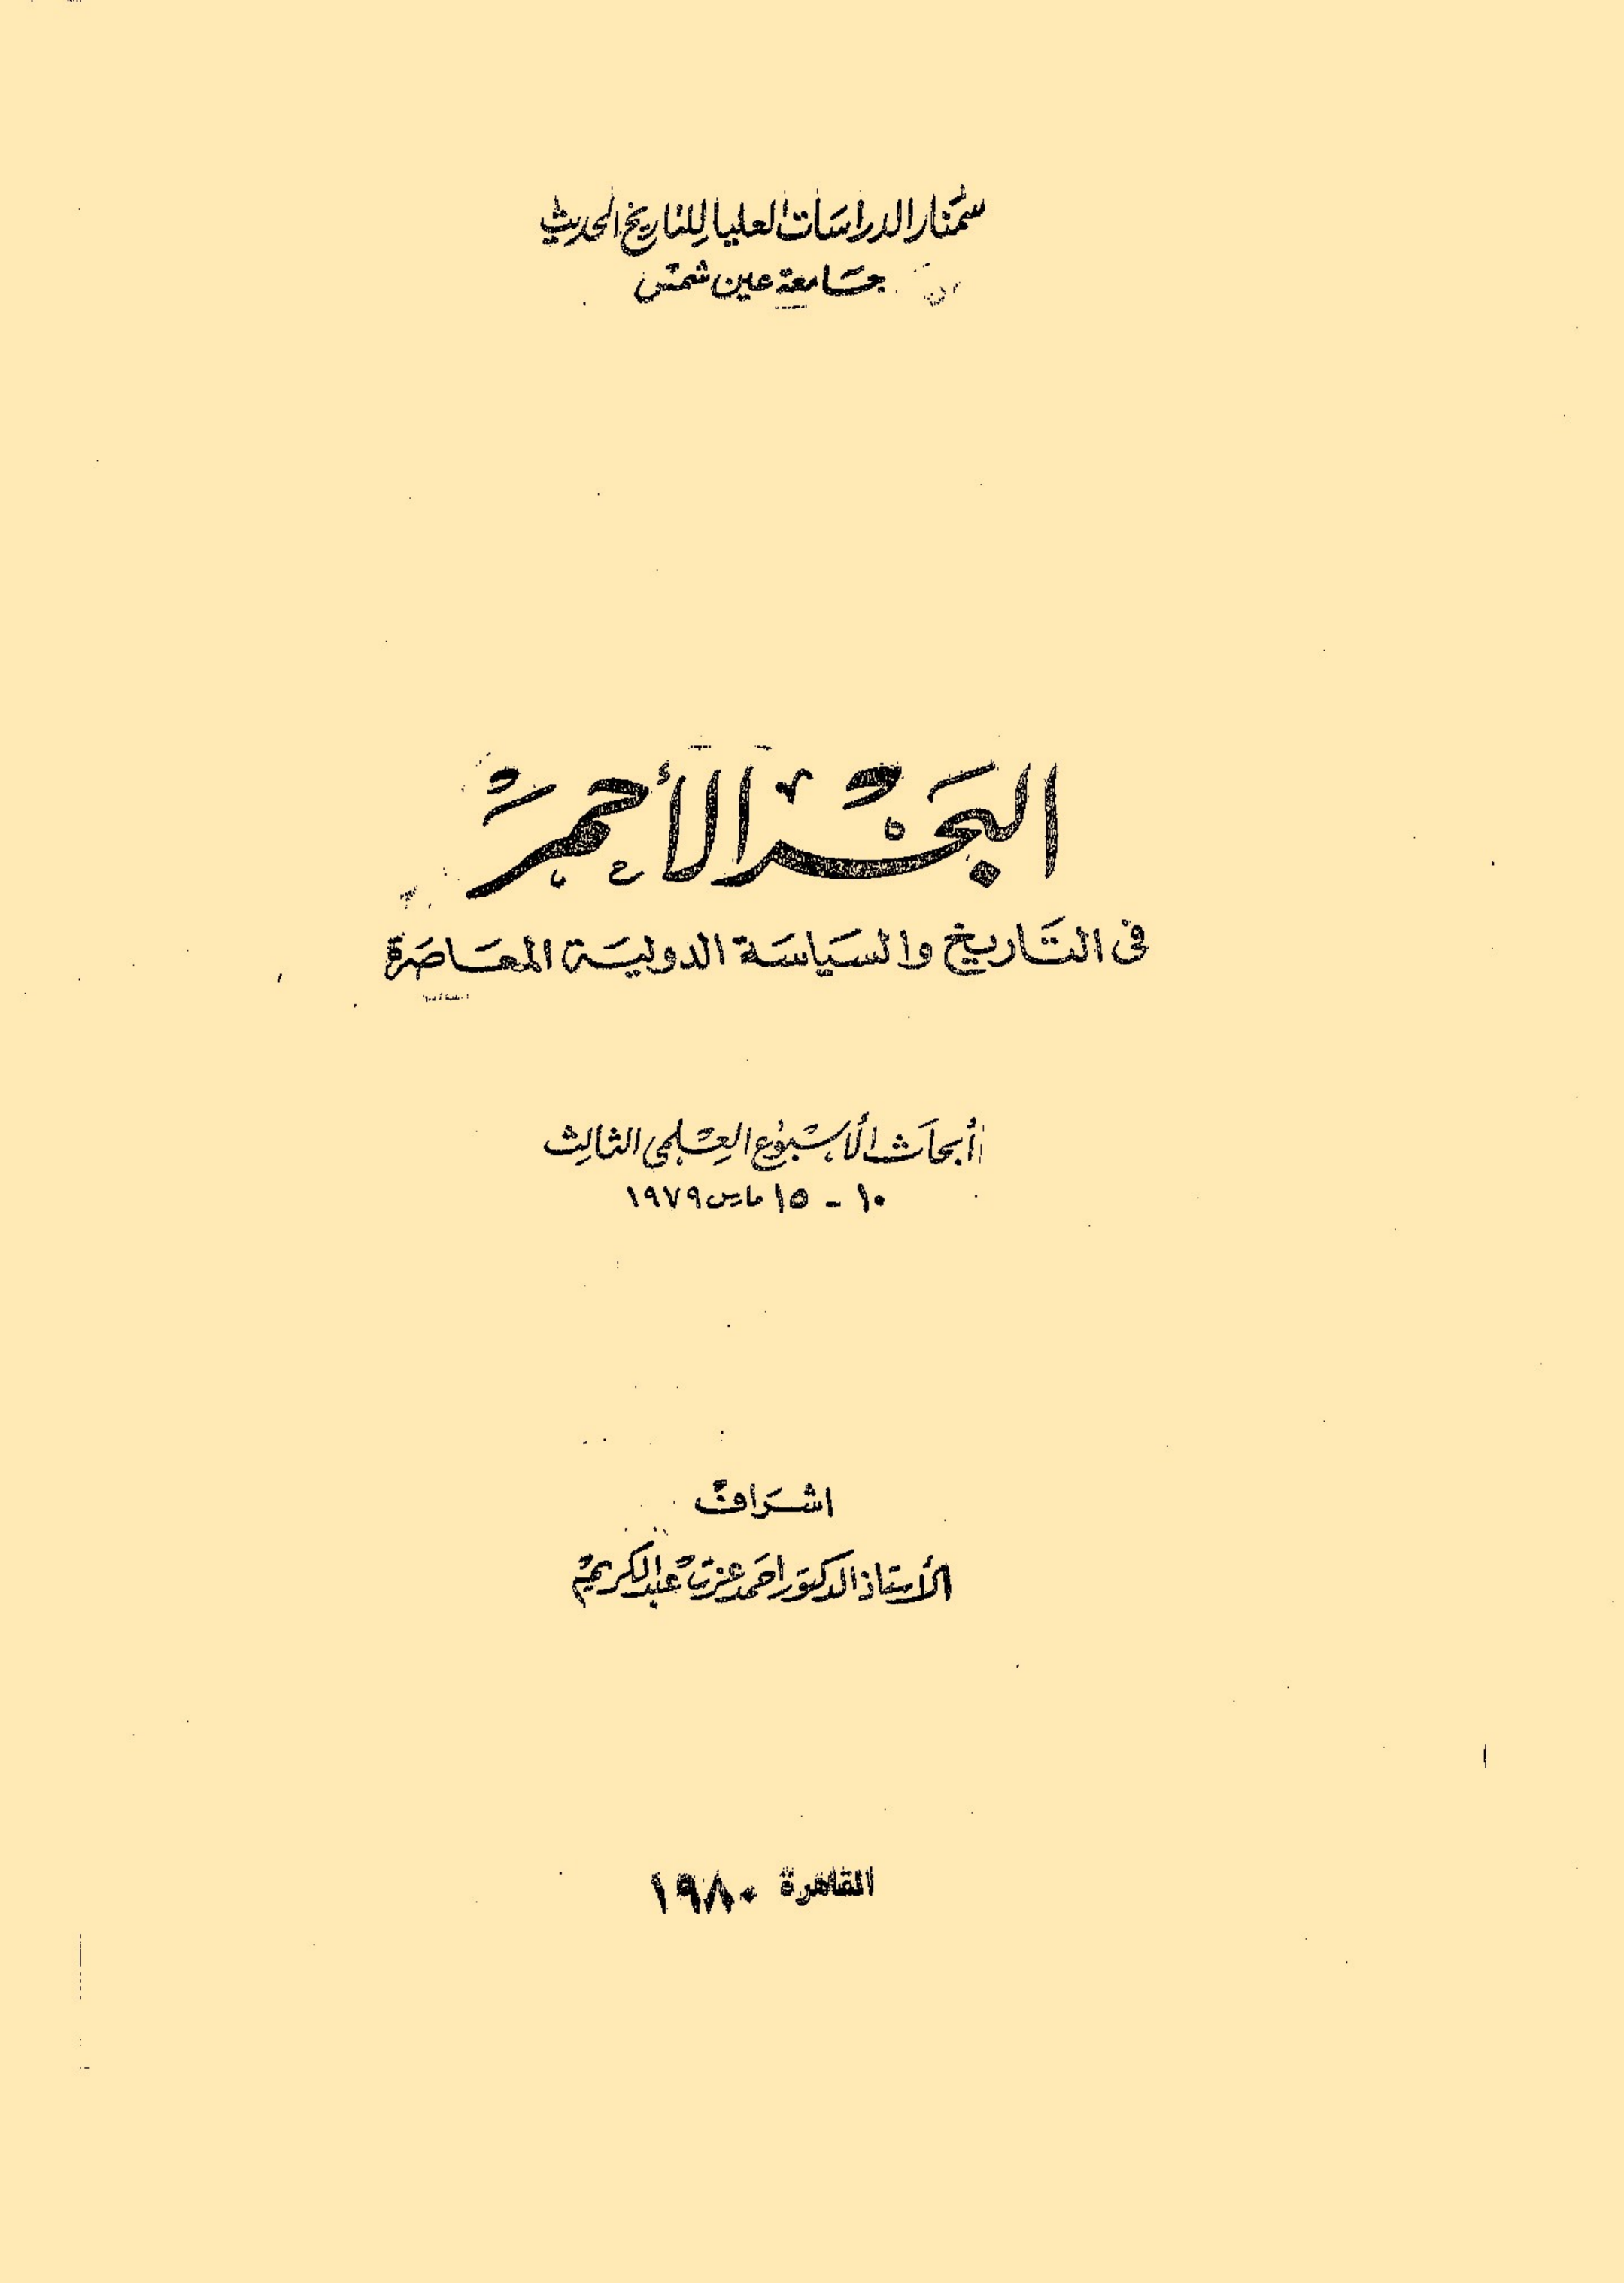 سمنار الدراسات العليا للتاريخ الحديث
جامعة عين شمس
البحر الأحمر
فى التاريخ والسياسة الدولية المعاصرة
أبحاث الأسبوع العلمى الثالث
١٠ - ١٥ مارس ١٩٧٩
اشراف
الأستاذ الدكتور احمد عزت عبد الكريم
القاهرة ١٩٨٠